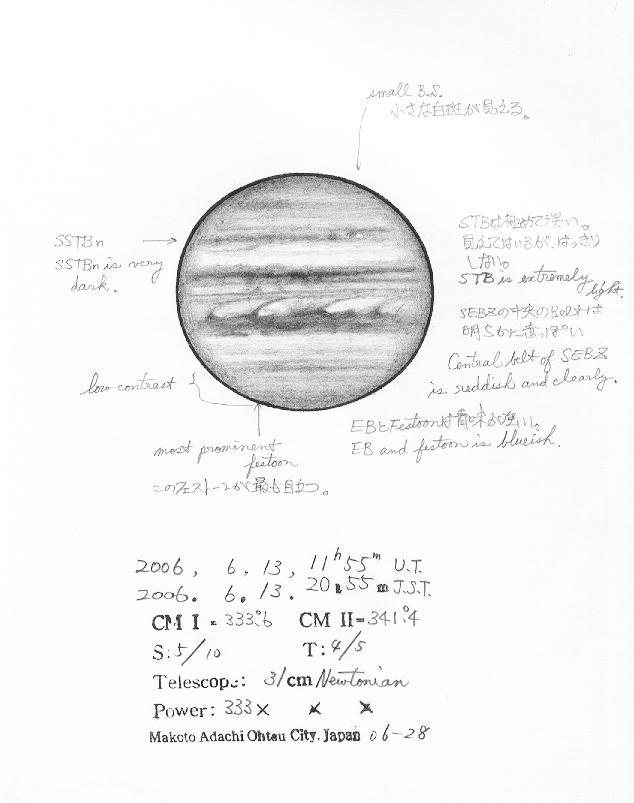 small B.S.
小さな白斑が見える。
SSTBn
SSTBn is very
dark.
STBは極めて淡い。
見えてはいるが、はっきり
しない。
STB is extremely
light.
SEBZの中央のBeltは
明らかに赤っぽい
Central belt of SEBZ
is reddish and clearly.
low contrast
EBとFestoonは青味が強い。
EB and festoon is blueish.
most prominent
festoon
このフェストーンが最も目立つ。
2006, 6, 13, 11h 55m U.T.
2006. 6. 13. 20h 55m J.S.T.
CM I = 333°.6 CM II = 341°.4
S: 5/10 T: 4/5
Telescope: 31cm Newtonian
Power: 333× × ×
Makoto Adachi Ohtsu City. Japan 06-28